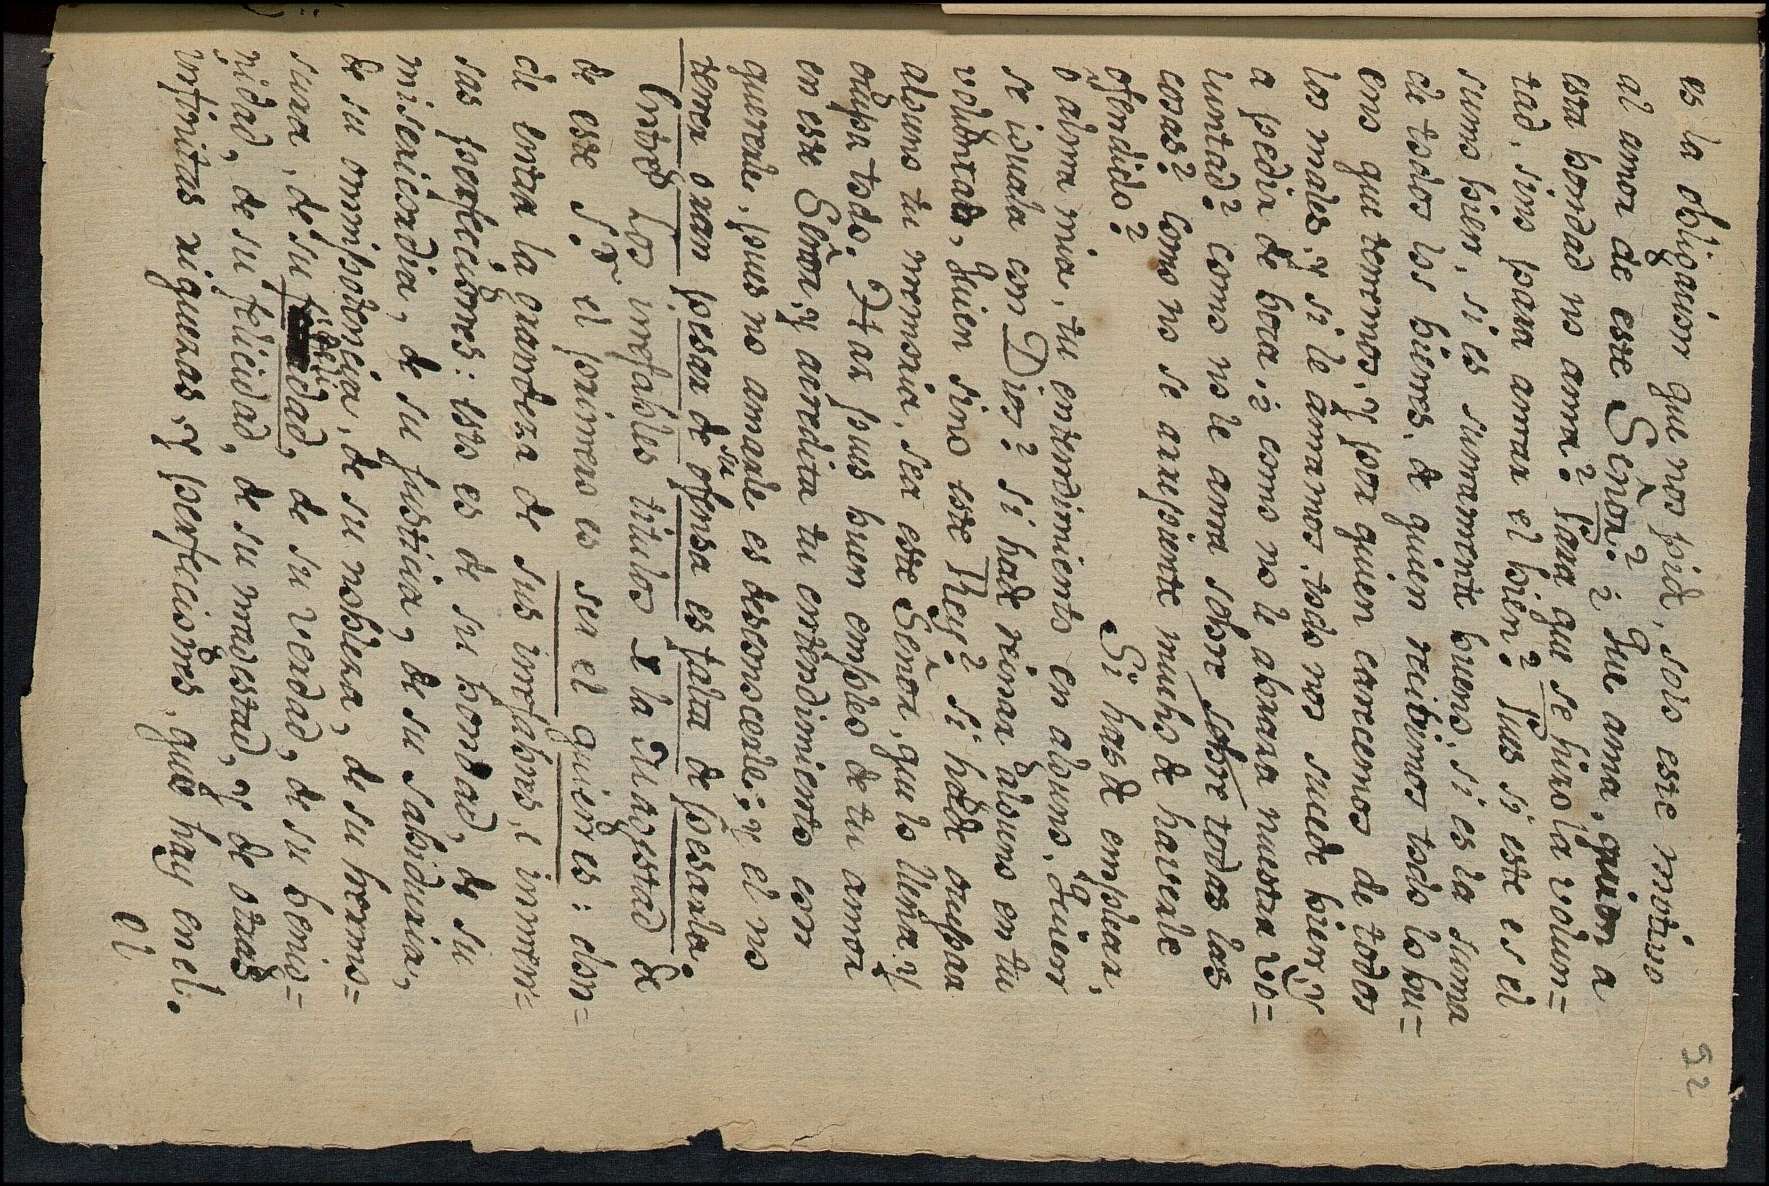 52
es la obligacion que nos pide, solo este motivo
al amor de este Señor? ¿ Que ama, quien a
esta bondad no ama? Para que se hizo la volun=
tad, sino para amar el bien? Pues si este es el
sumo bien, si es sumamente bueno, si es la suma
de todos los bienes, de quien recibimos todo lo bu=
eno que tenemos, y por quien carecemos de todos
los males, y si le amamos, todo nos sucede bien, y
a pedir de boca, ¿ como no le abraza nuestra vo=
luntad? como no le ama sobre sobre todas las
cosas? Como no se arrepiente mucho de haverle
ofendido?
Si has de emplear,
ô alma mia, tu entendimiento en alguno, Quien
se iguala con Dios? si hade reinar alguno en tu
voluntad, Quien sino este Rey? si hade ocupar
alguno tu memoria, sea este Señor, que lo llena, y
ocupa todo. Har pues buen empleo de tu amor
en esse Señor, y acredita tu entendimiento con
quererle, pues no amarle es desconocerle; y el no
tener gran pesar de su ofensa es falta de pesarlo.
Entre los inefables titulos de la Magestad de
de esse Sr. el primero es ser el quien es: don=
de entra la grandeza de sus inefables, e inmen=
sas perfecciones: esto es de su bondad, de su
misericordia, de su justicia, de su sabiduria,
de su omnipotencia, de su nobleza, de su hermo=
sura, de su fidelidad, de su verdad, de su benig=
nidad, de su felicidad, de su magestad, y de otras
infinitas riquezas, y perfecciones, que hay en el.
ol